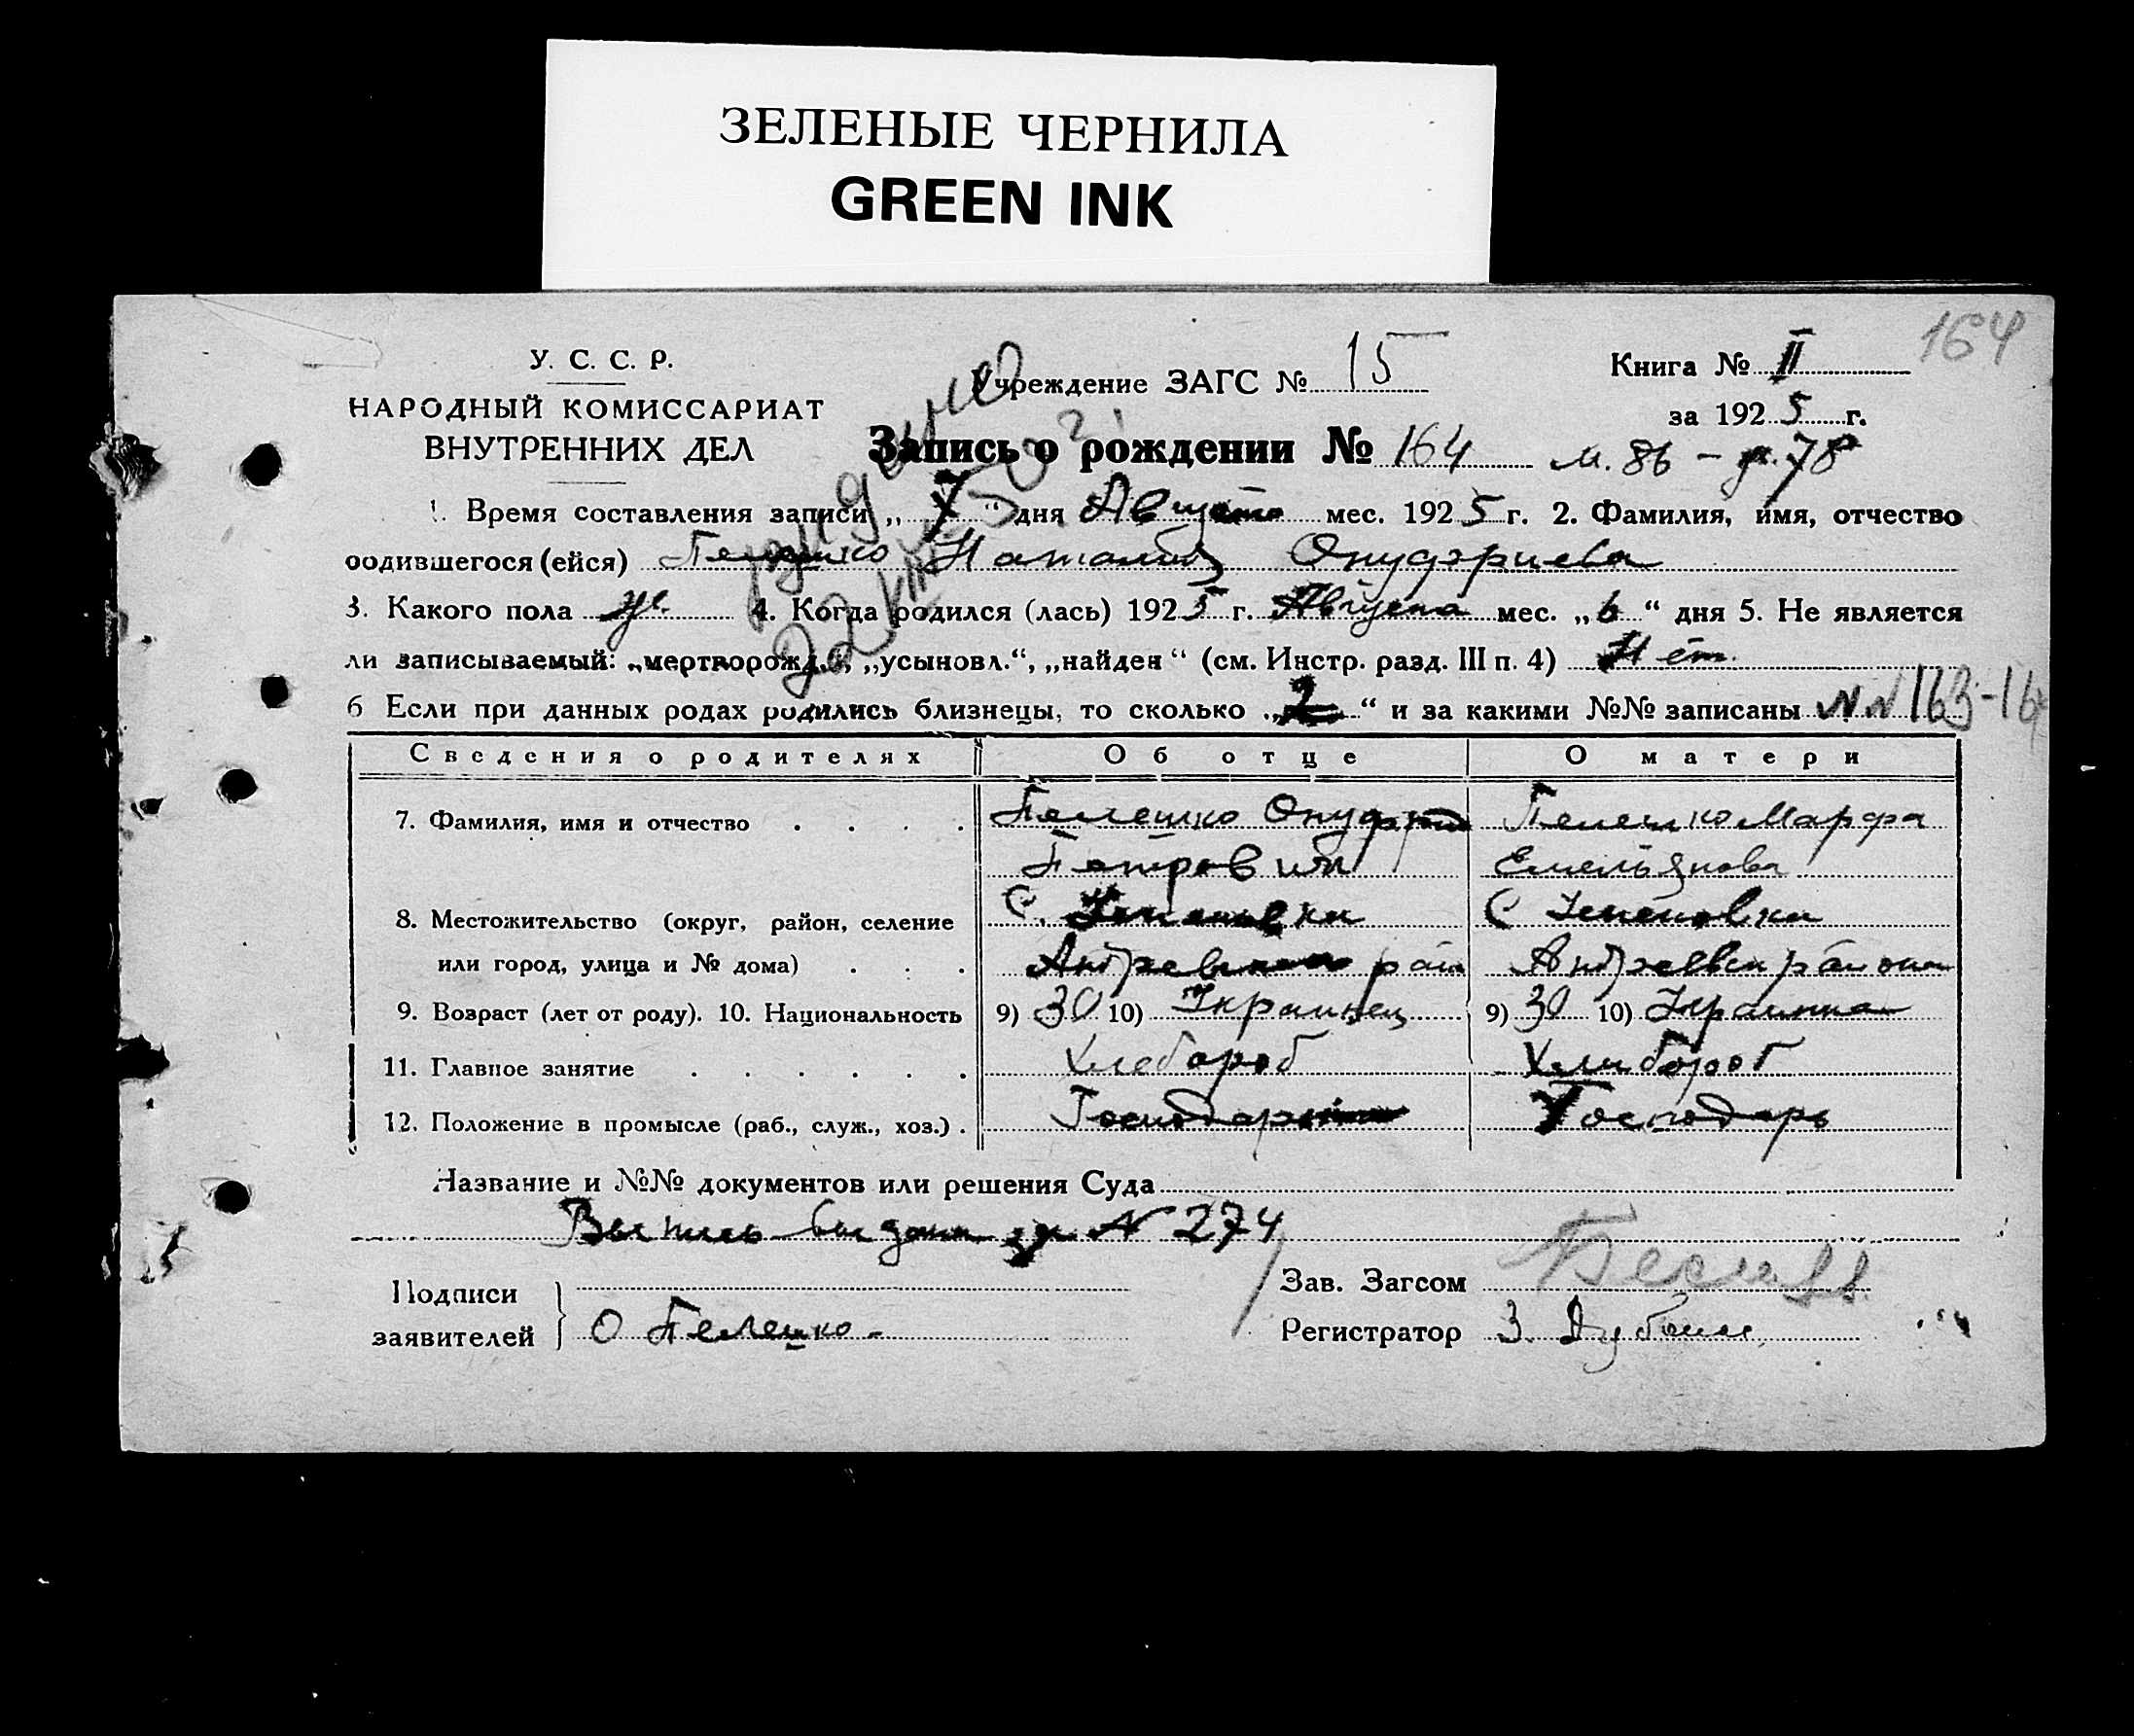 ЗЕЛЕНЫЕ ЧЕРНИЛА
GREEN INK
164
У. С. С. Р.
НАРОДНЫЙ КОМИССАРИАТ
ВНУТРЕННИХ ДЕЛ
Учреждение ЗАГС № 15
Книга № II
за 1925 г.
Запись о рождении № 164 м. 86 – д. 78
1. Время составления записи „7“ дня Августа мес. 1925 г. 2. Фамилия, имя, отчество
родившегося (ейся) Пелешко Наталия Онуфриева
3. Какого пола ж. 4. Когда родился (лась) 1925 г. Августа мес. „6“ дня 5. Не является
ли записываемый: „мертворожд.“, „усыновл.“, „найден“ (см. Инстр. разд. III п. 4) Нет.
6 Если при данных родах родились близнецы, то сколько „2“ и за какими №№ записаны NN 163-164
Сведения о родителях Об отце О матери
7. Фамилия, имя и отчество . . . . Пелешко Онуфрий Пелешко Марфа
Петрович Емельянова
8. Местожительство (округ, район, селение С. С
или город, улица и № дома) . . . рай района
9. Возраст (лет от роду). 10. Национальность 9) 30 10) Украинец 9) 30 10) Украинка
11. Главное занятие . . . . . . Хлебороб Хлибороб
12. Положение в промысле (раб., служ., хоз.) . Господарь Господарь
Название и №№ документов или решения Суда
Выпись выдана за N 274
Подписи
заявителей О Пелешко.
Зав. Загсом
Регистратор З.